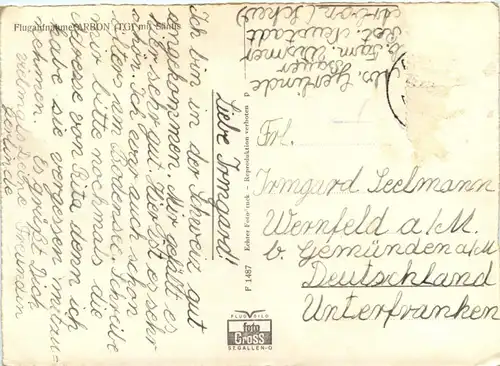 Flugaufnahme ARBON (TG) mit Säntis
Liebe Irmgard!
Ich bin in der Schweiz gut
angekommen. Mir gefällt es
hier sehr gut. Hier ist es sehr
schön. Ich war auch schon
öfters am Bodensee. Schreibe
mir bitte nochmal die
Adresse von Rita denn ich
habe sie vergessen mitzu-
nehmen. Es grüßt Dich
vielmals Deine Freundin
Gerlinde
Abs. Gerlinde
Bauer
b. Fam. Wismer
Arbon (Schweiz)
Echtes Foto Reproduktion verboten
F 1487
Frl.
Irmgard Seelmann
Wernfeld a/M.
b. Gemünden a/M
Deutschland
Unterfranken
FLUGBILD
foto
Gross
ST. GALLEN-O